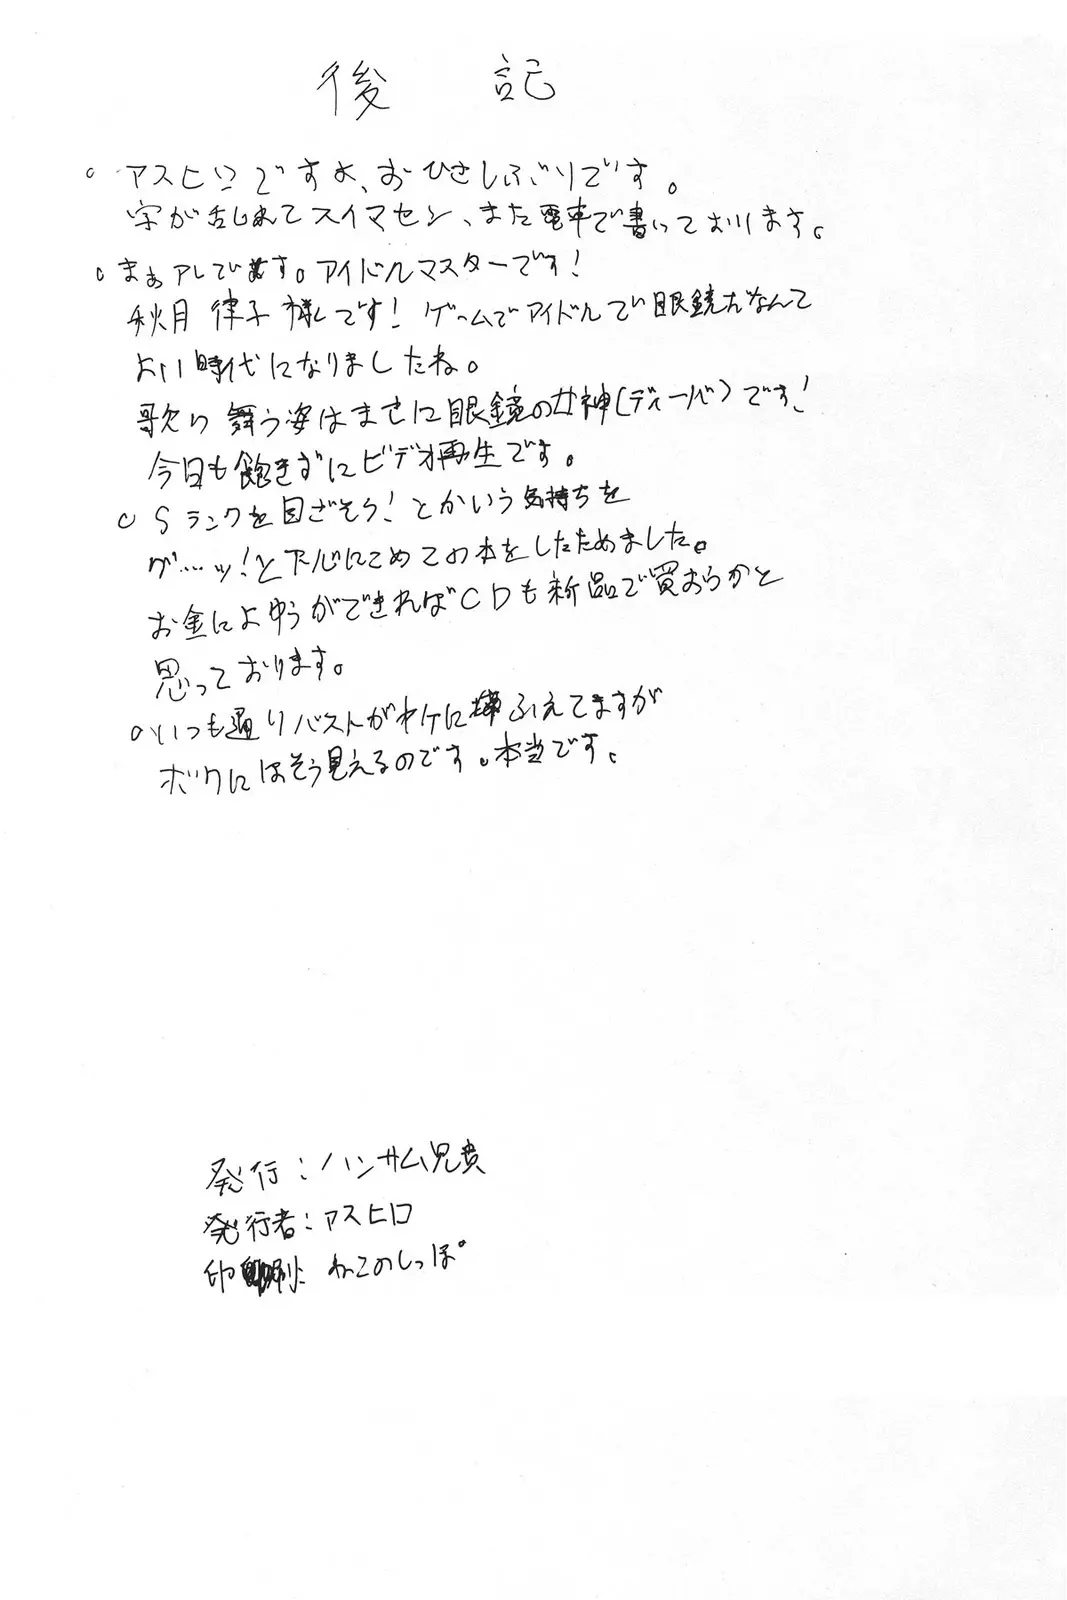 後記
。アスヒロですよ、おひさしぶりです。
字が乱れてスイマセン、また電車で書いております。
。まぁアレです。アイドルマスターです!
秋月 律子様です! ゲームでアイドルで眼鏡だなんて
よい時代になりましたね。
歌い 舞う姿はまさに眼鏡の女神(ディーバ)です!
今日も飽きずにビデオ再生です。
。Sランクを目ざそう!とかいう気持ちを
グ…ッ!と下心にこめてこの本をしたためました。
お金によゆうができればCDも新品で買おうかと
思っております。
。いつも通りバストがヤケにふえてますが
ボクにはそう見えるのです。本当です。
発行:ハンサム兄貴
発行者:アスヒロ
印刷:ねこのしっぽ